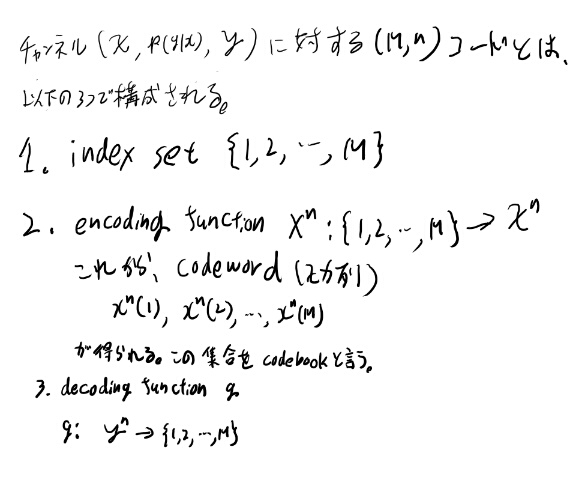 チャンネル (𝒳, p(y|x), 𝒴) に対する (M,n) コードとは、
以下の3つで構成される。
1. index set {1,2,…,M}
2. encoding function Xⁿ:{1,2,…,M}→𝒳ⁿ
これから、codeword (を列)
xⁿ(1), xⁿ(2),…, xⁿ(M)
が得られる。この集合を codebookと言う。
3. decoding function g
g: 𝒴ⁿ→{1,2,…,M}